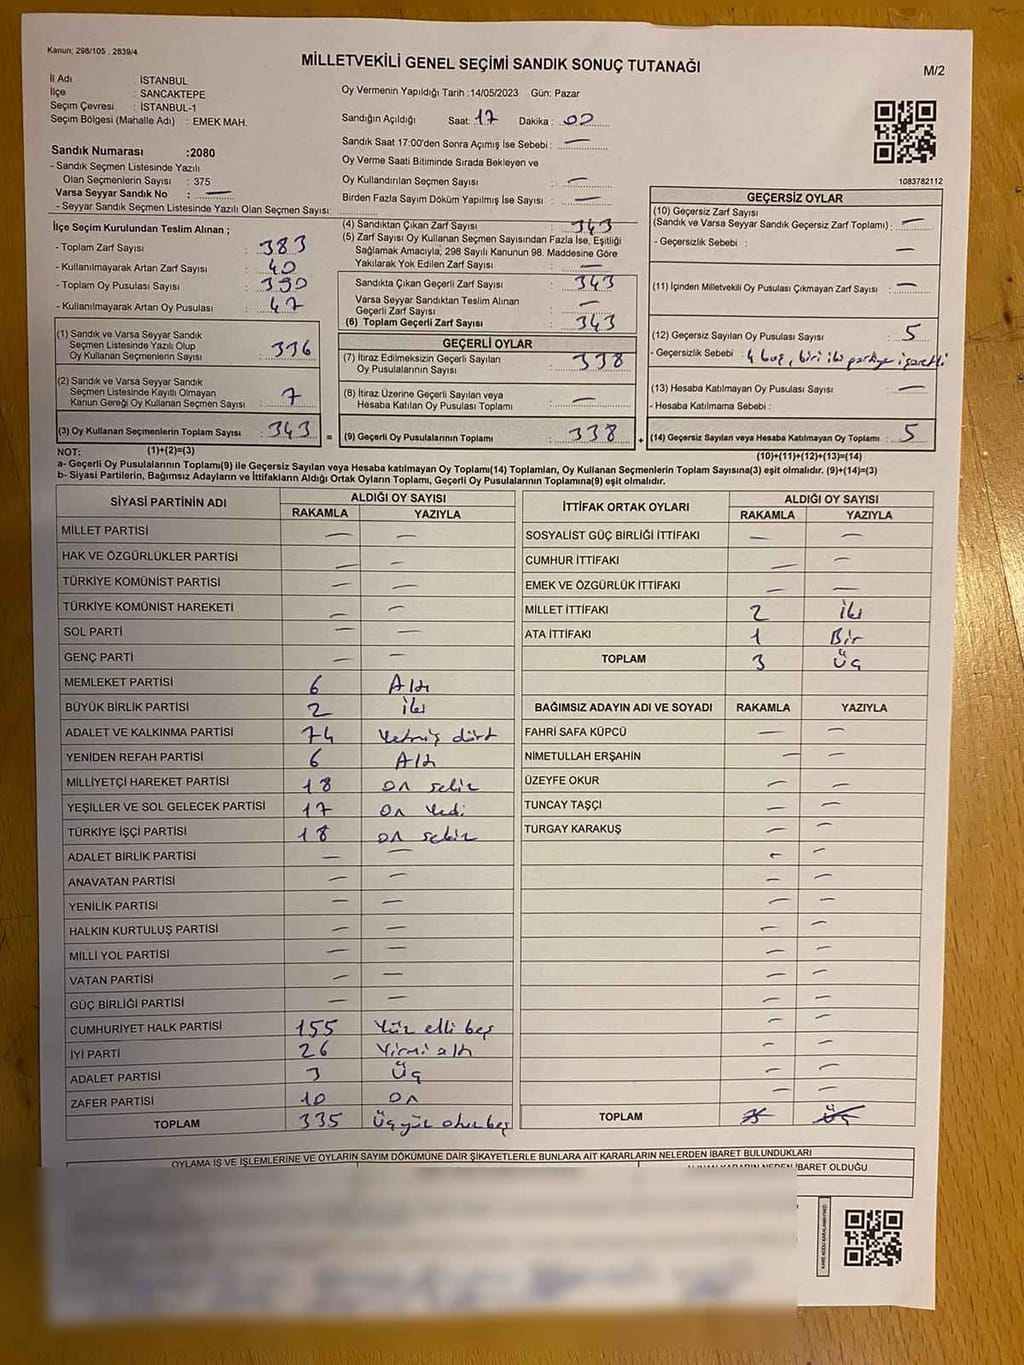 Kanun; 298/105 , 2839/4
MİLLETVEKİLİ GENEL SEÇİMİ SANDIK SONUÇ TUTANAĞI
M/2
İl Adı : İSTANBUL
İlçe : SANCAKTEPE
Seçim Çevresi : İSTANBUL-1
Seçim Bölgesi (Mahalle Adı) : EMEK MAH.
Sandık Numarası :2080
- Sandık Seçmen Listesinde Yazılı
Olan Seçmenlerin Sayısı : 375
Varsa Seyyar Sandık No : —
- Seyyar Sandık Seçmen Listesinde Yazılı Olan Seçmen Sayısı:
Oy Vermenin Yapıldığı Tarih :14/05/2023 Gün: Pazar
Sandığın Açıldığı Saat: 17 Dakika : 00
Sandık Saat 17:00'den Sonra Açımış İse Sebebi : —
Oy Verme Saati Bitiminde Sırada Bekleyen ve
Oy Kullandırılan Seçmen Sayısı : —
Birden Fazla Sayım Döküm Yapılmış İse Sayısı : —
1083782112
İlçe Seçim Kurulundan Teslim Alınan ;
- Toplam Zarf Sayısı : 383
- Kullanılmayarak Artan Zarf Sayısı : 40
- Toplam Oy Pusulası Sayısı : 390
- Kullanılmayarak Artan Oy Pusulası : 47
(1) Sandık ve Varsa Seyyar Sandık
Seçmen Listesinde Yazılı Olup
Oy Kullanan Seçmenlerin Sayısı : 336
(2) Sandık ve Varsa Seyyar Sandık
Seçmen Listesinde Kayıtlı Olmayan
Kanun Gereği Oy Kullanan Seçmen Sayısı : 7
(3) Oy Kullanan Seçmenlerin Toplam Sayısı : 343
(4) Sandıktan Çıkan Zarf Sayısı : 343
(5) Zarf Sayısı Oy Kullanan Seçmen Sayısından Fazla İse, Eşitliği
Sağlamak Amacıyla; 298 Sayılı Kanunun 98. Maddesine Göre
Yakılarak Yok Edilen Zarf Sayısı : —
Sandıkta Çıkan Geçerli Zarf Sayısı : 343
Varsa Seyyar Sandıktan Teslim Alınan
Geçerli Zarf Sayısı : —
(6) Toplam Geçerli Zarf Sayısı : 343
GEÇERLİ OYLAR
(7) İtiraz Edilmeksizin Geçerli Sayılan
Oy Pusulalarının Sayısı : 338
(8) İtiraz Üzerine Geçerli Sayılan veya
Hesaba Katılan Oy Pusulası Toplamı : —
= (9) Geçerli Oy Pusulalarının Toplamı : 338
GEÇERSİZ OYLAR
(10) Geçersiz Zarf Sayısı
(Sandık ve Varsa Seyyar Sandık Geçersiz Zarf Toplamı) : —
- Geçersizlik Sebebi : —
(11) İçinden Milletvekili Oy Pusulası Çıkmayan Zarf Sayısı : —
(12) Geçersiz Sayılan Oy Pusulası Sayısı : 5
- Geçersizlik Sebebi : 4 boş, biri iki partiye işaretli
(13) Hesaba Katılmayan Oy Pusulası Sayısı : —
- Hesaba Katılmama Sebebi :
+ (14) Geçersiz Sayılan veya Hesaba Katılmayan Oy Toplamı : 5
NOT: (1)+(2)=(3)
(10)+(11)+(12)+(13)=(14)
a- Geçerli Oy Pusulalarının Toplamı(9) ile Geçersiz Sayılan veya Hesaba katılmayan Oy Toplamı(14) Toplamları, Oy Kullanan Seçmenlerin Toplam Sayısına(3) eşit olmalıdır. (9)+(14)=(3)
b- Siyasi Partilerin, Bağımsız Adayların ve İttifakların Aldığı Ortak Oyların Toplamı, Geçerli Oy Pusulalarının Toplamına(9) eşit olmalıdır.
SİYASİ PARTİNİN ADI ALDIĞI OY SAYISI
RAKAMLA YAZIYLA
MİLLET PARTİSİ — —
HAK VE ÖZGÜRLÜKLER PARTİSİ — —
TÜRKİYE KOMÜNİST PARTİSİ — —
TÜRKİYE KOMÜNİST HAREKETİ — —
SOL PARTİ — —
GENÇ PARTİ — —
MEMLEKET PARTİSİ 6 Altı
BÜYÜK BİRLİK PARTİSİ 2 iki
ADALET VE KALKINMA PARTİSİ 74 Yetmiş dört
YENİDEN REFAH PARTİSİ 6 Altı
MİLLİYETÇİ HAREKET PARTİSİ 18 on sekiz
YEŞİLLER VE SOL GELECEK PARTİSİ 17 on Yedi
TÜRKİYE İŞÇİ PARTİSİ 18 on sekiz
ADALET BİRLİK PARTİSİ — —
ANAVATAN PARTİSİ — —
YENİLİK PARTİSİ — —
HALKIN KURTULUŞ PARTİSİ — —
MİLLİ YOL PARTİSİ — —
VATAN PARTİSİ — —
GÜÇ BİRLİĞİ PARTİSİ — —
CUMHURİYET HALK PARTİSİ 155 Yüz elli beş
İYİ PARTİ 26 Yirmi altı
ADALET PARTİSİ 3 Üç
ZAFER PARTİSİ 10 on
TOPLAM 335 Üç yüz otuz beş
İTTİFAK ORTAK OYLARI ALDIĞI OY SAYISI
RAKAMLA YAZIYLA
SOSYALİST GÜÇ BİRLİĞİ İTTİFAKI — —
CUMHUR İTTİFAKI — —
EMEK VE ÖZGÜRLÜK İTTİFAKI — —
MİLLET İTTİFAKI 2 iki
ATA İTTİFAKI 1 Bir
TOPLAM 3 Üç
BAĞIMSIZ ADAYIN ADI VE SOYADI RAKAMLA YAZIYLA
FAHRİ SAFA KÜPCÜ — —
NİMETULLAH ERŞAHİN — —
ÜZEYFE OKUR — —
TUNCAY TAŞÇI — —
TURGAY KARAKUŞ — —
TOPLAM
OYLAMA İŞ VE İŞLEMLERİNE VE OYLARIN SAYIM DÖKÜMÜNE DAİR ŞİKAYETLERLE BUNLARA AİT KARARLARIN NELERDEN İBARET BULUNDUKLARI
ALINAN KARARIN NEDEN İBARET OLDUĞU